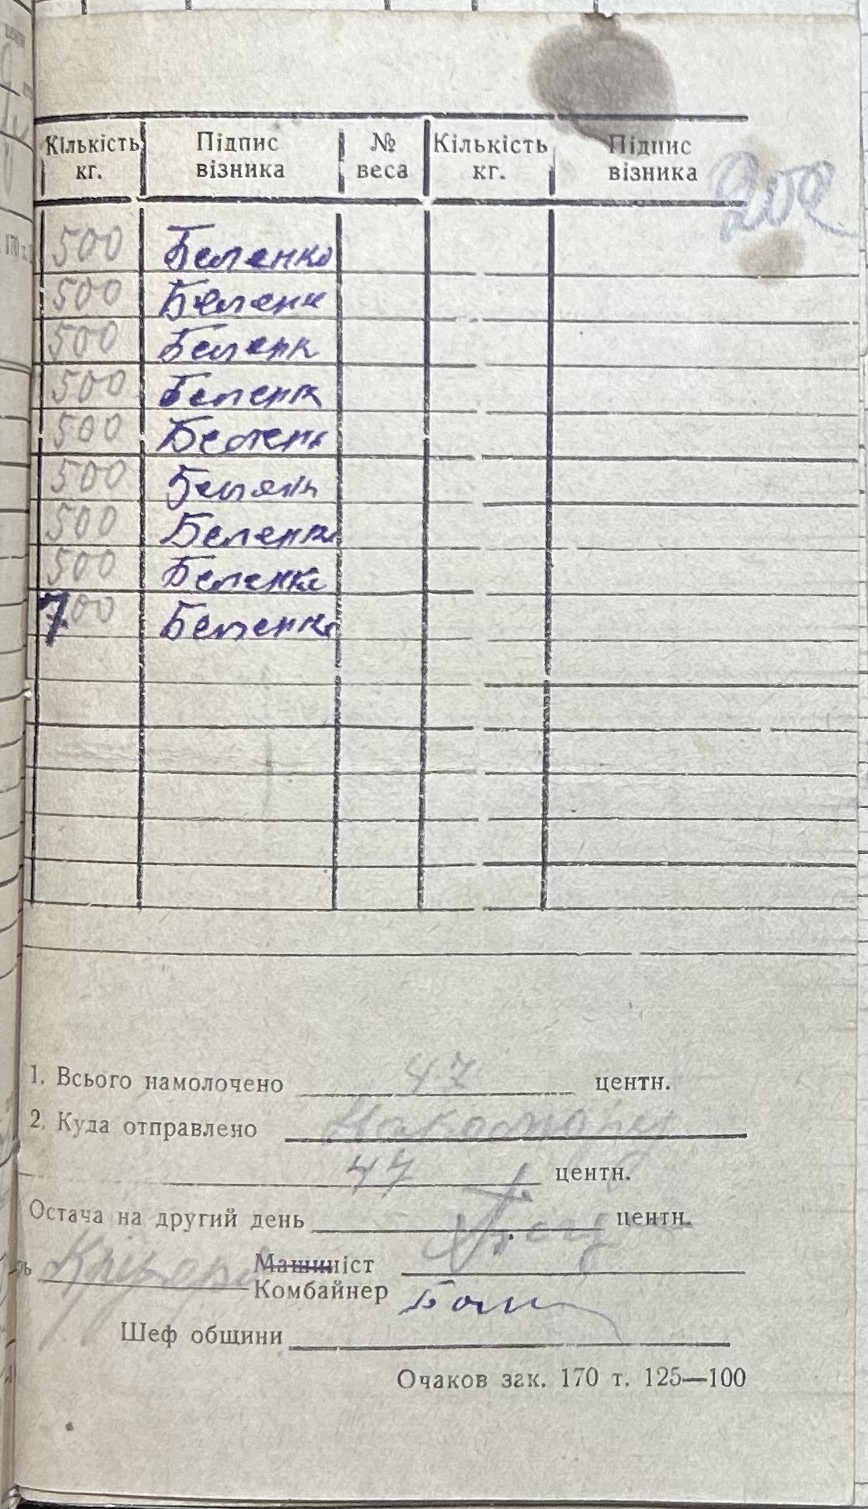 Кількість кг. Підпис візника № веса Кількість кг. Підпис візника
202
500 Беленко
500 Белени
500 Беленк
500 Беленк
500 Белен
500 Белен
500 Беленк
500 Беленко
700 Беленко
1. Всього намолочено 47 центн.
2. Куда отправлено
47 центн.
Остача на другий день центн.
Машиніст
Комбайнер
Шеф общини
Очаков зак. 170 т. 125—100